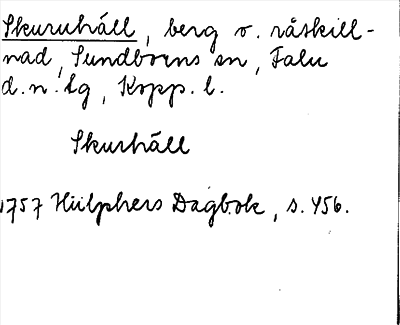 Skuruhäll, berg o. råskill-
nad, Sundborns sn, Falu
d.n. lg, Kopp. l.
Skurhäll
1757 Hülphers Dagbok, s. 456.